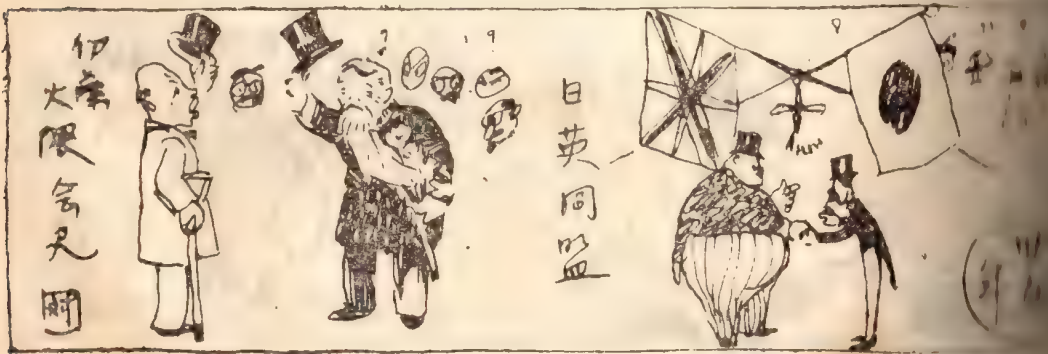 日英同盟
伊藤
大隈会見図